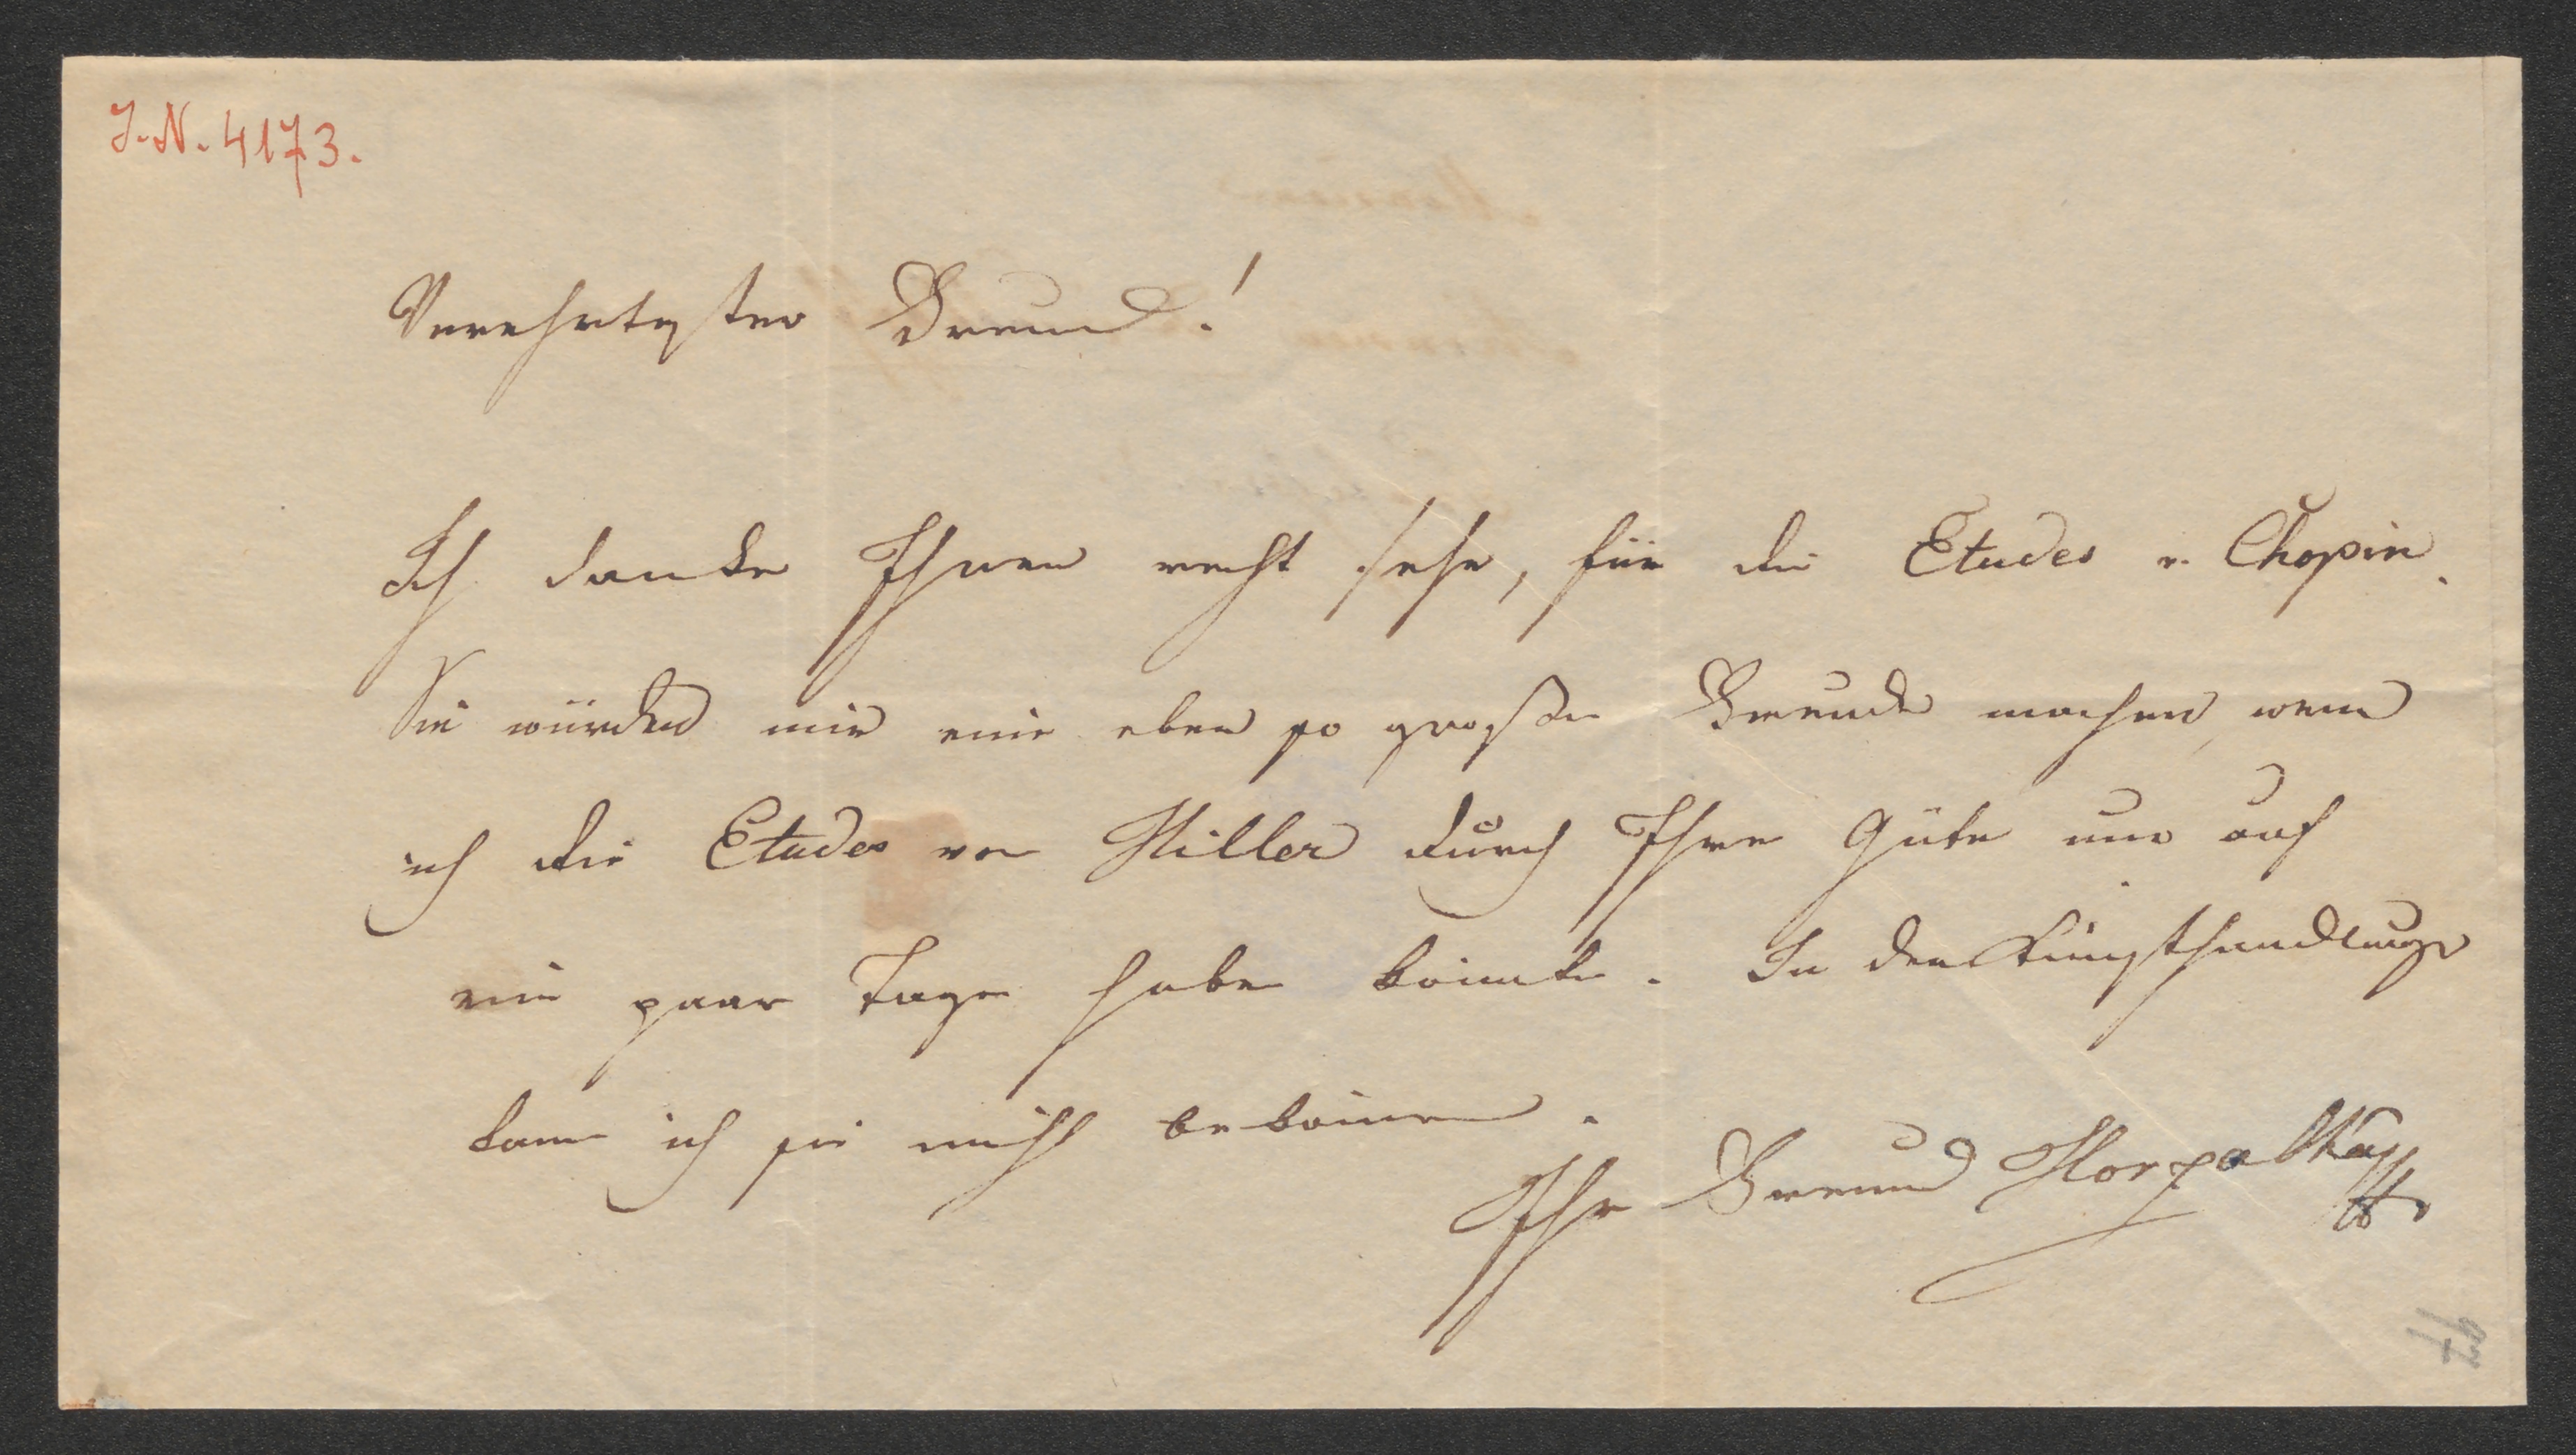 J.N. 4173.
Verehrtester Freund!
Ich danke Ihnen recht sehr, für die Etudes v. Chopin.
Sie würden mir eine eben so große Freude machen, wenn
ich die Etudes von Hiller durch Ihre Güte nur auf
ein paar Tage haben könnte. In den Kunsthandlungen
kann ich sie nicht bekommen.
Ihr Freund Horzalka